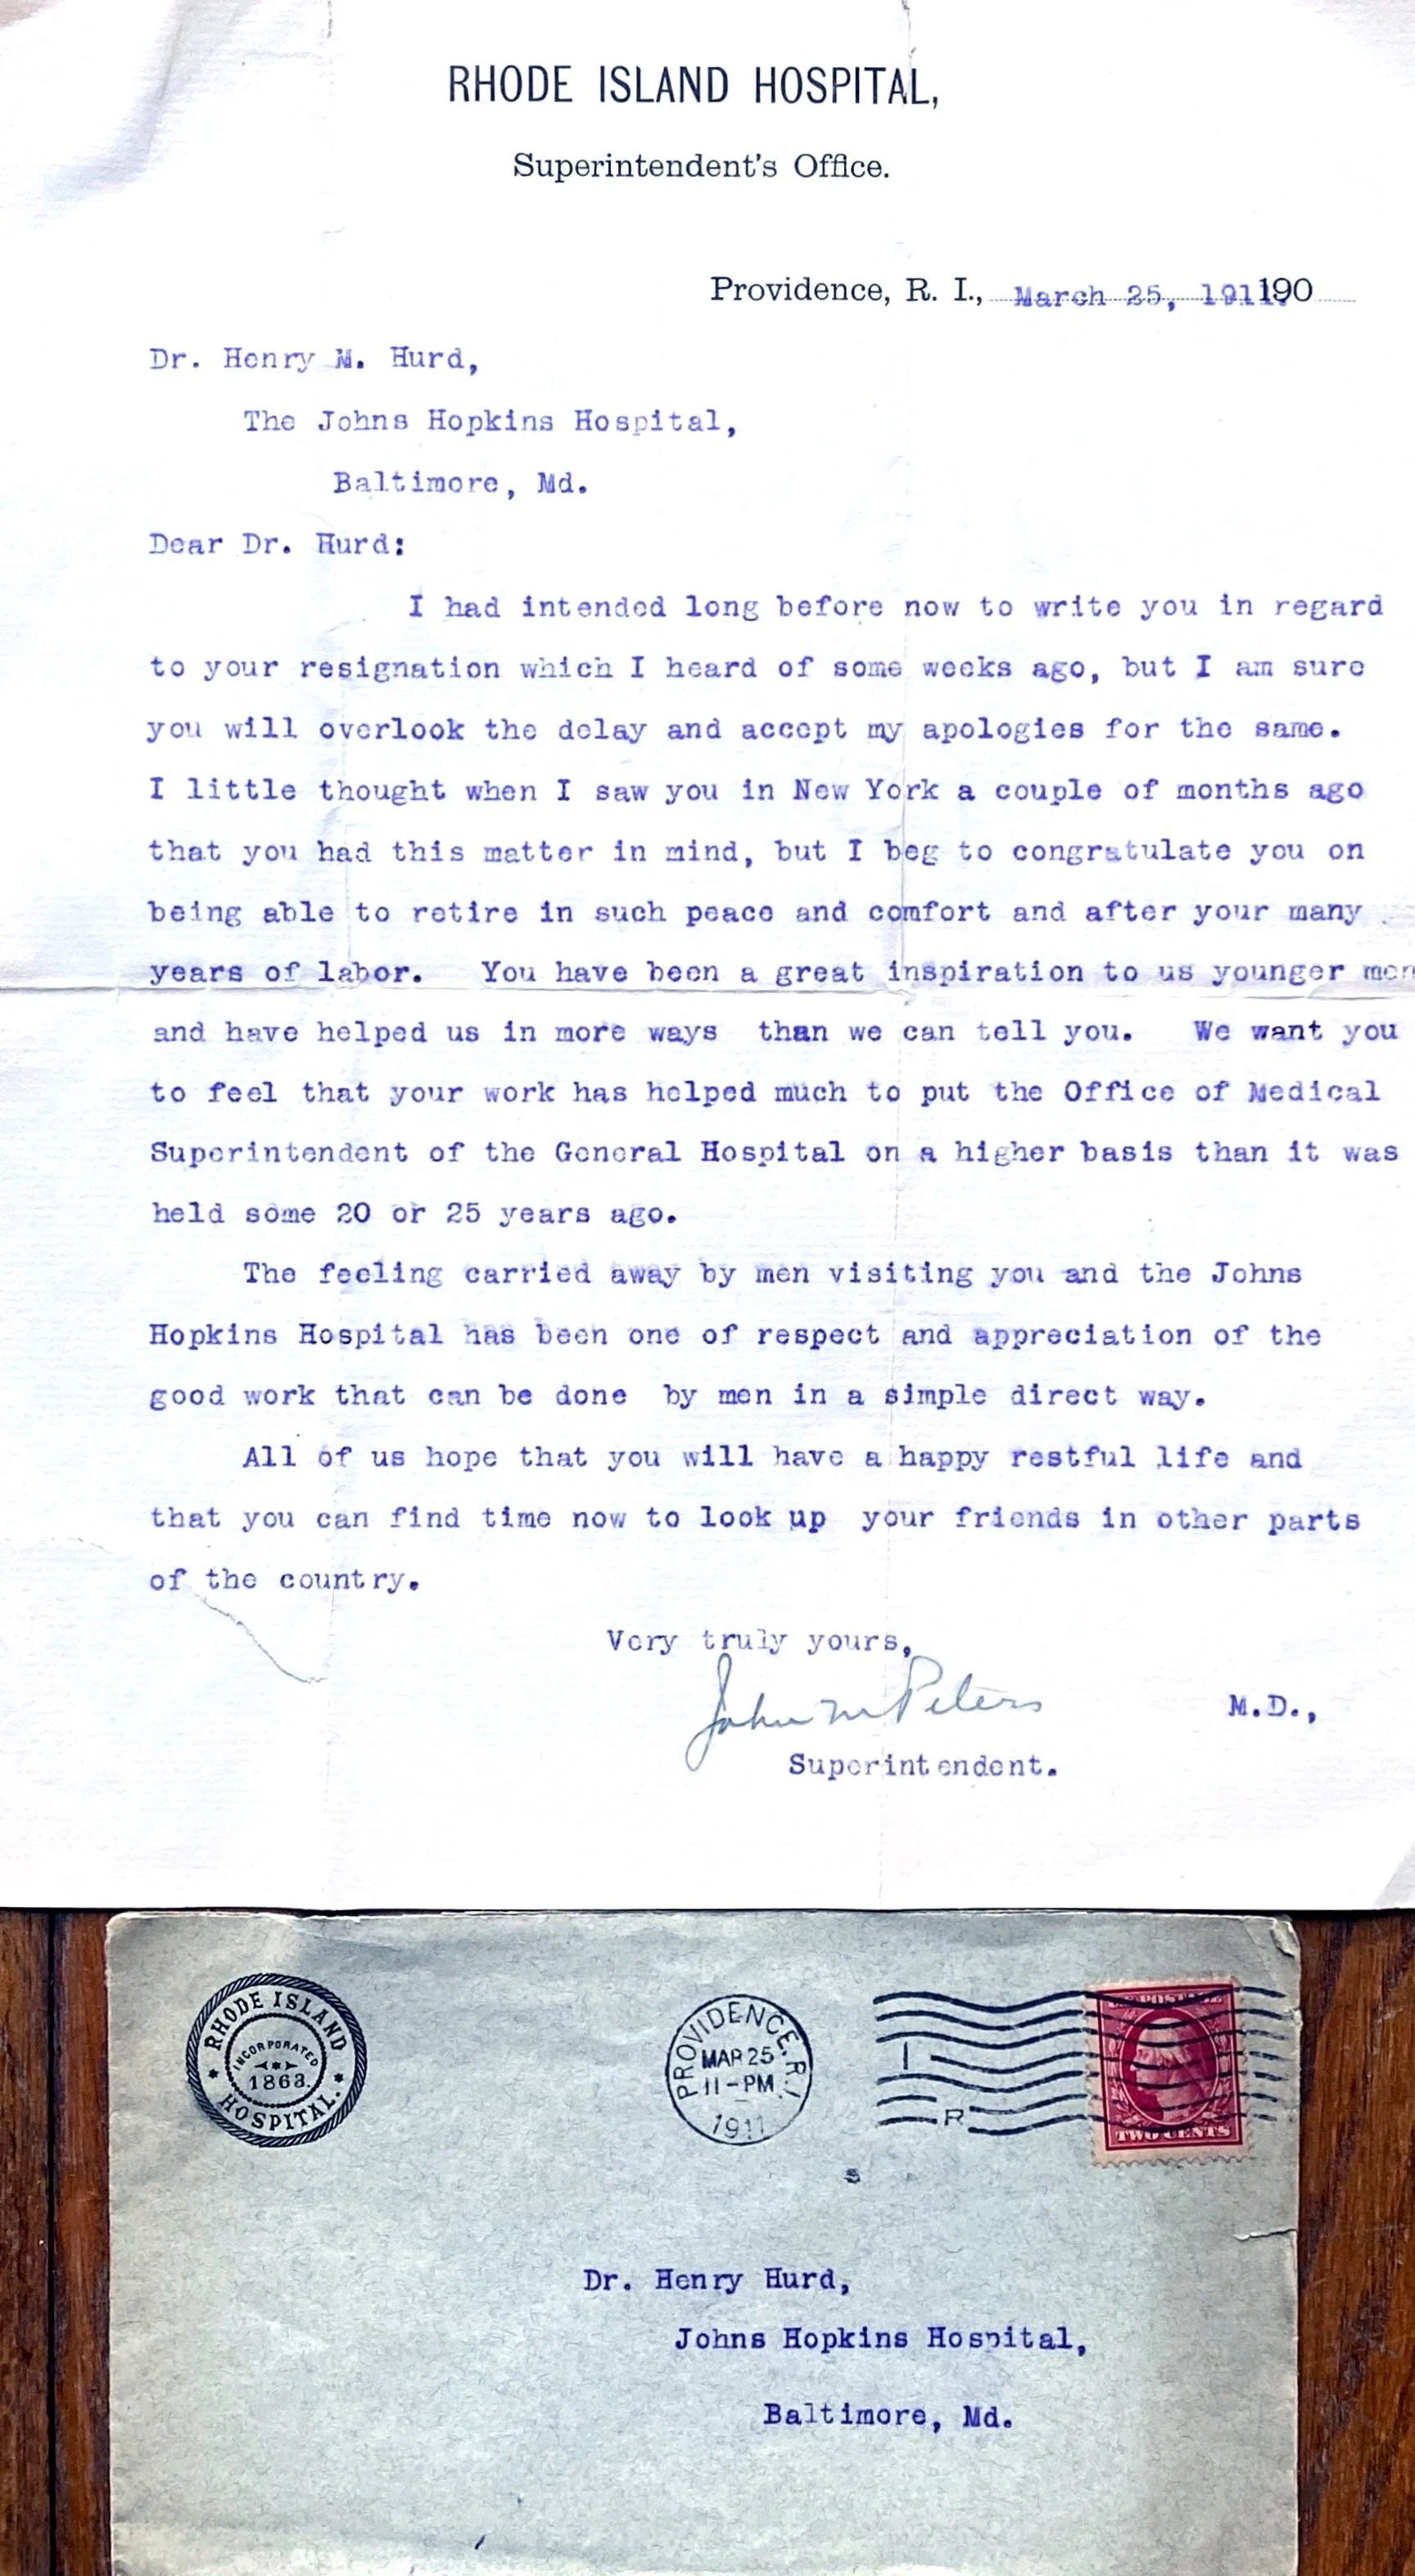 RHODE ISLAND HOSPITAL,
Superintendent's Office.
Providence, R. I., March 25, 1911. 190
Dr. Henry M. Hurd,
The Johns Hopkins Hospital,
Baltimore, Md.
Dear Dr. Hurd:
I had intended long before now to write you in regard
to your resignation which I heard of some weeks ago, but I am sure
you will overlook the delay and accept my apologies for the same.
I little thought when I saw you in New York a couple of months ago
that you had this matter in mind, but I beg to congratulate you on
being able to retire in such peace and comfort and after your many
years of labor. You have been a great inspiration to us younger men
and have helped us in more ways than we can tell you. We want you
to feel that your work has helped much to put the Office of Medical
Superintendent of the General Hospital on a higher basis than it was
held some 20 or 25 years ago.
The feeling carried away by men visiting you and the Johns
Hopkins Hospital has been one of respect and appreciation of the
good work that can be done by men in a simple direct way.
All of us hope that you will have a happy restful life and
that you can find time now to look up your friends in other parts
of the country.
Very truly yours,
John M Peters M.D.,
Superintendent.
RHODE ISLAND HOSPITAL.
INCORPORATED
1863.
PROVIDENCE, R.I.
MAR 25
11-PM
1911
I
R
TWO CENTS
Dr. Henry Hurd,
Johns Hopkins Hospital,
Baltimore, Md.